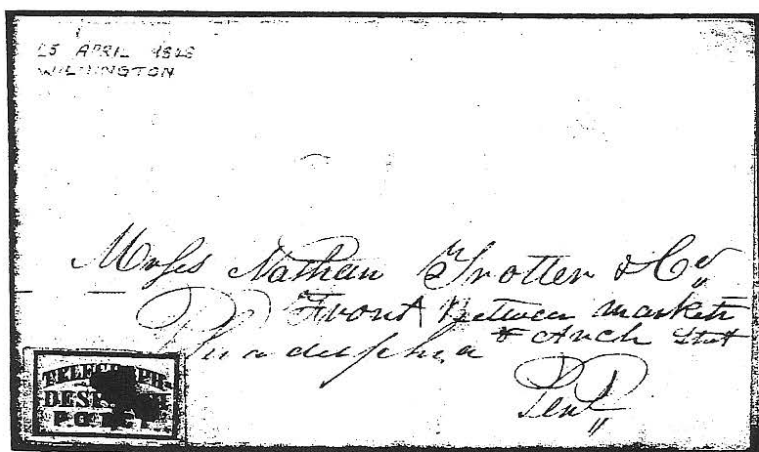 25 APRIL 1848
WILMINGTON
Messrs Nathan Trotter & Co
Front Between market
& Arch Street
Philadelphia
Penl
TELEGRAPH
DESPATCH
POST